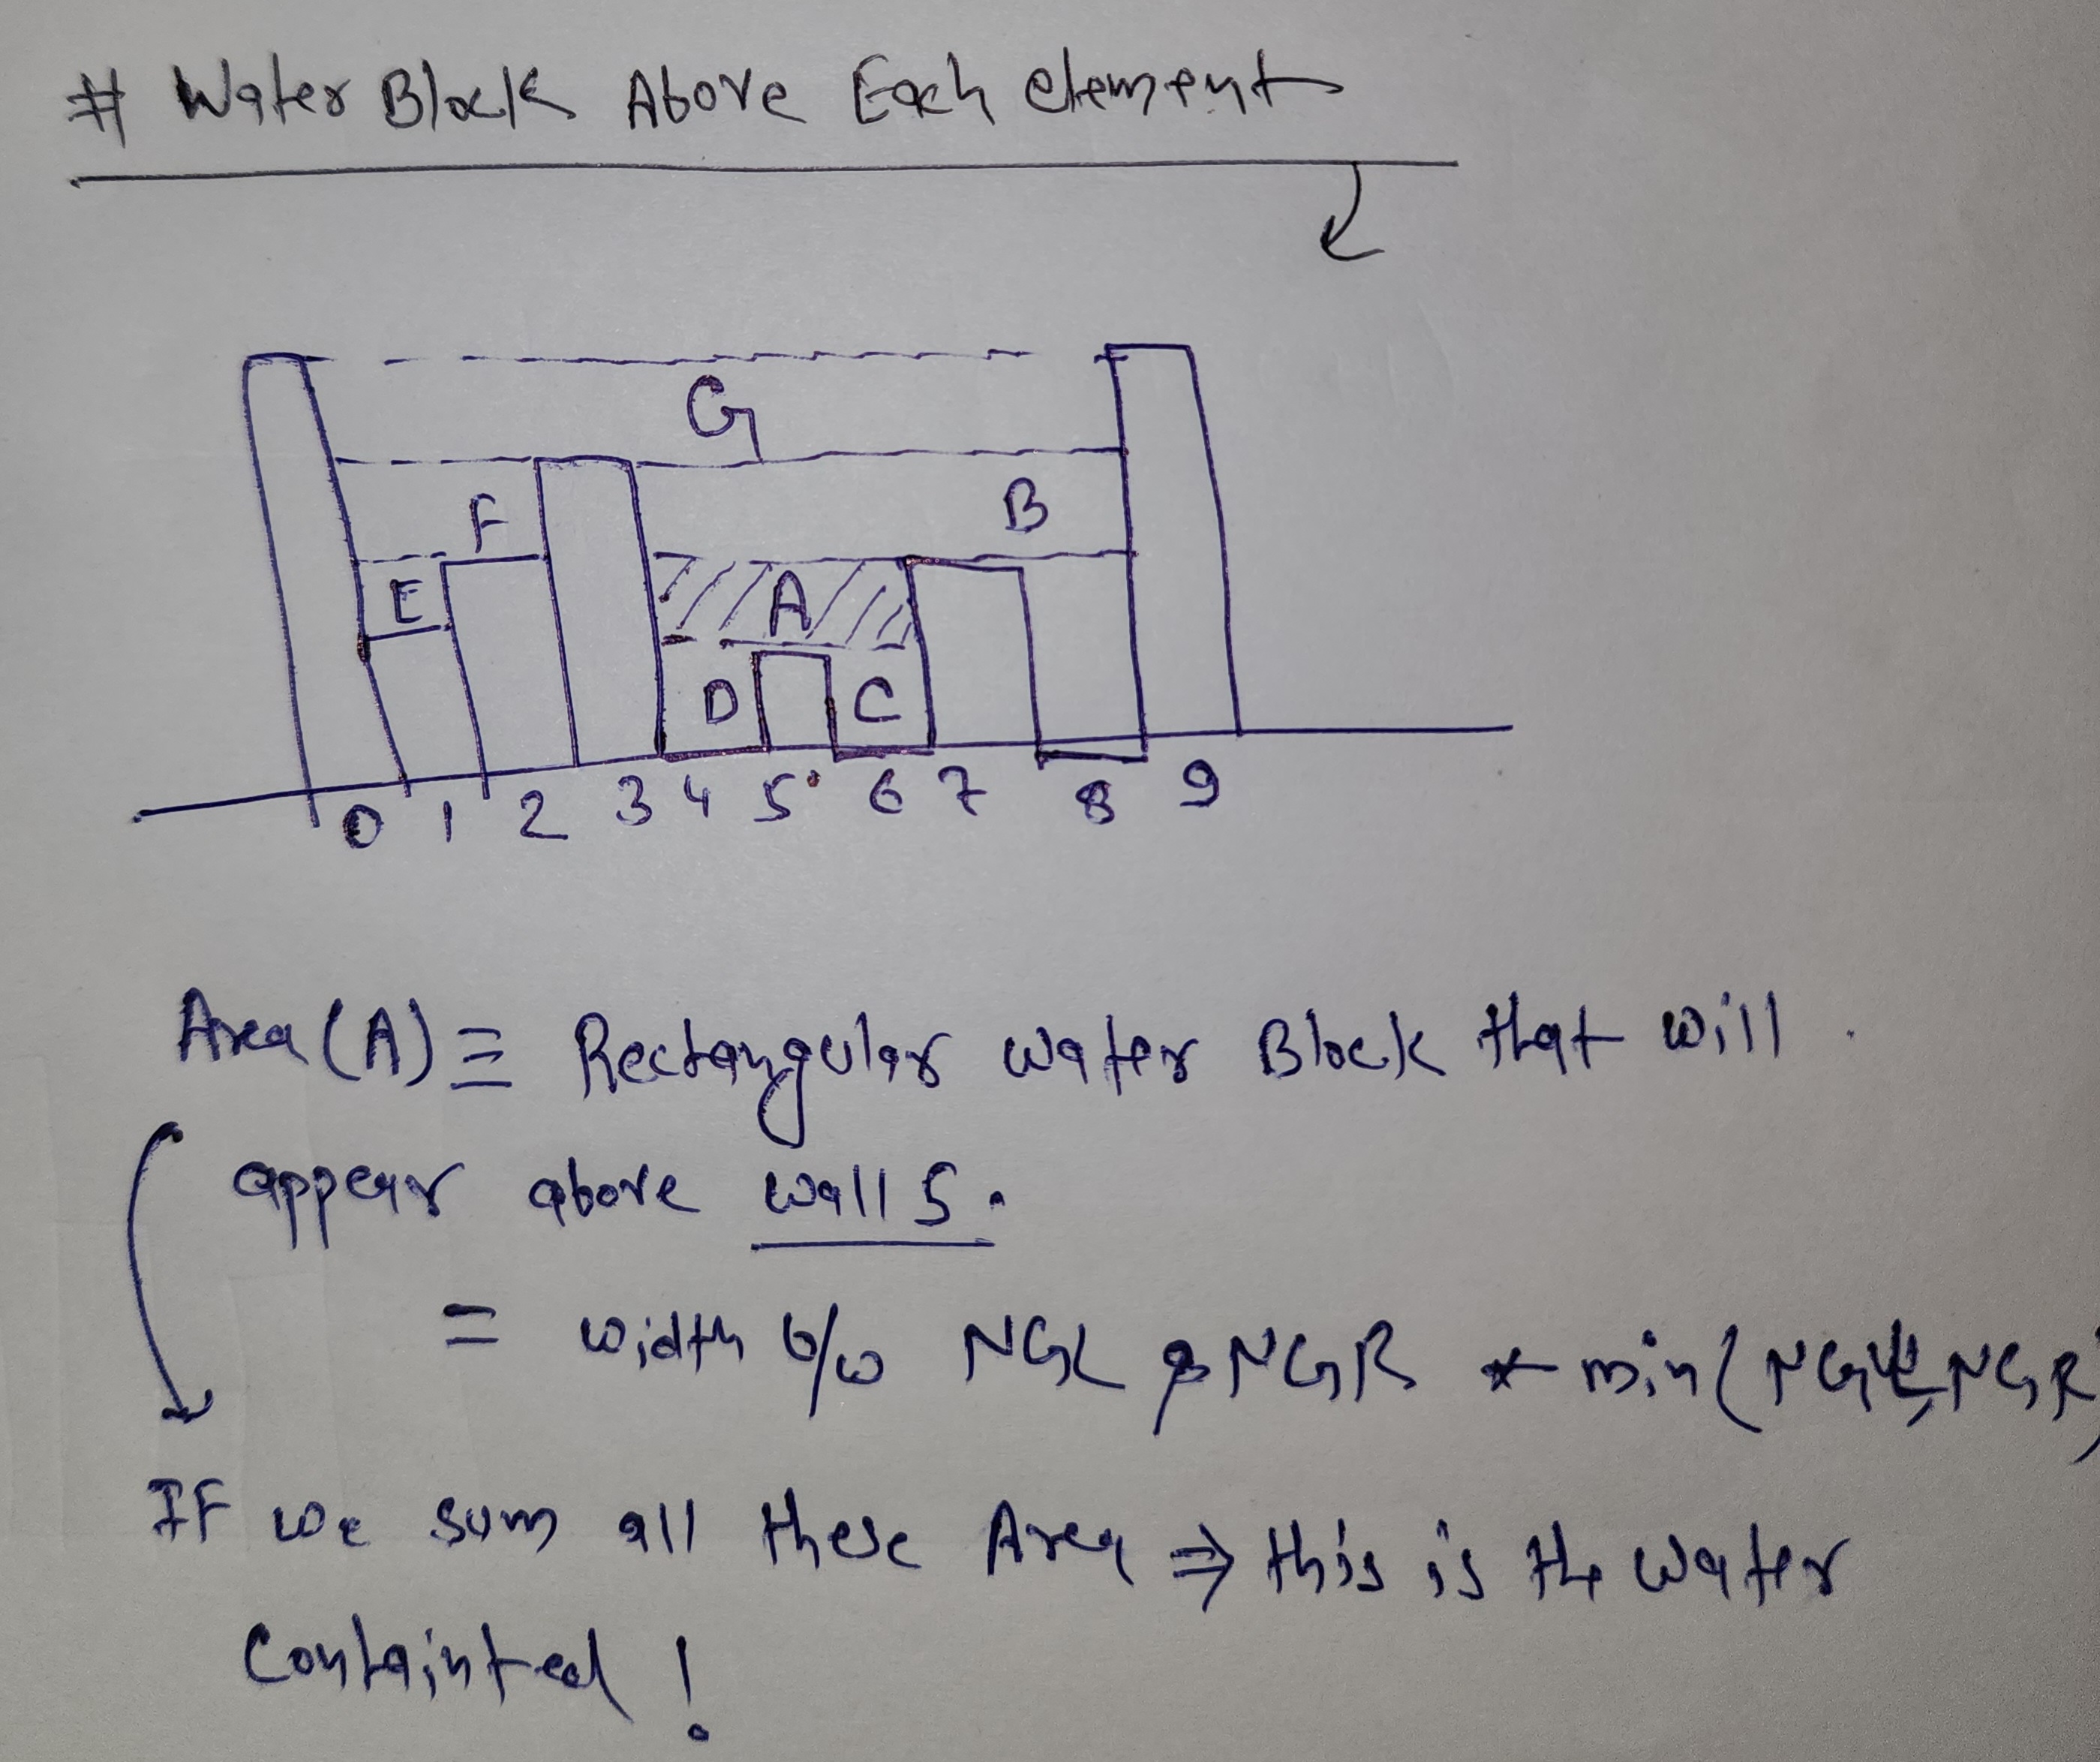 # Water Block Above Each element
G
F B
E A
D C
0 1 2 3 4 5 6 7 8 9
Area (A) ≡ Rectangular water Block that will
appear above wall 5.
= width b/w NGL & NGR * min(NGL, NGR)
IF we sum all these Area ⇒ this is the water
Containted !